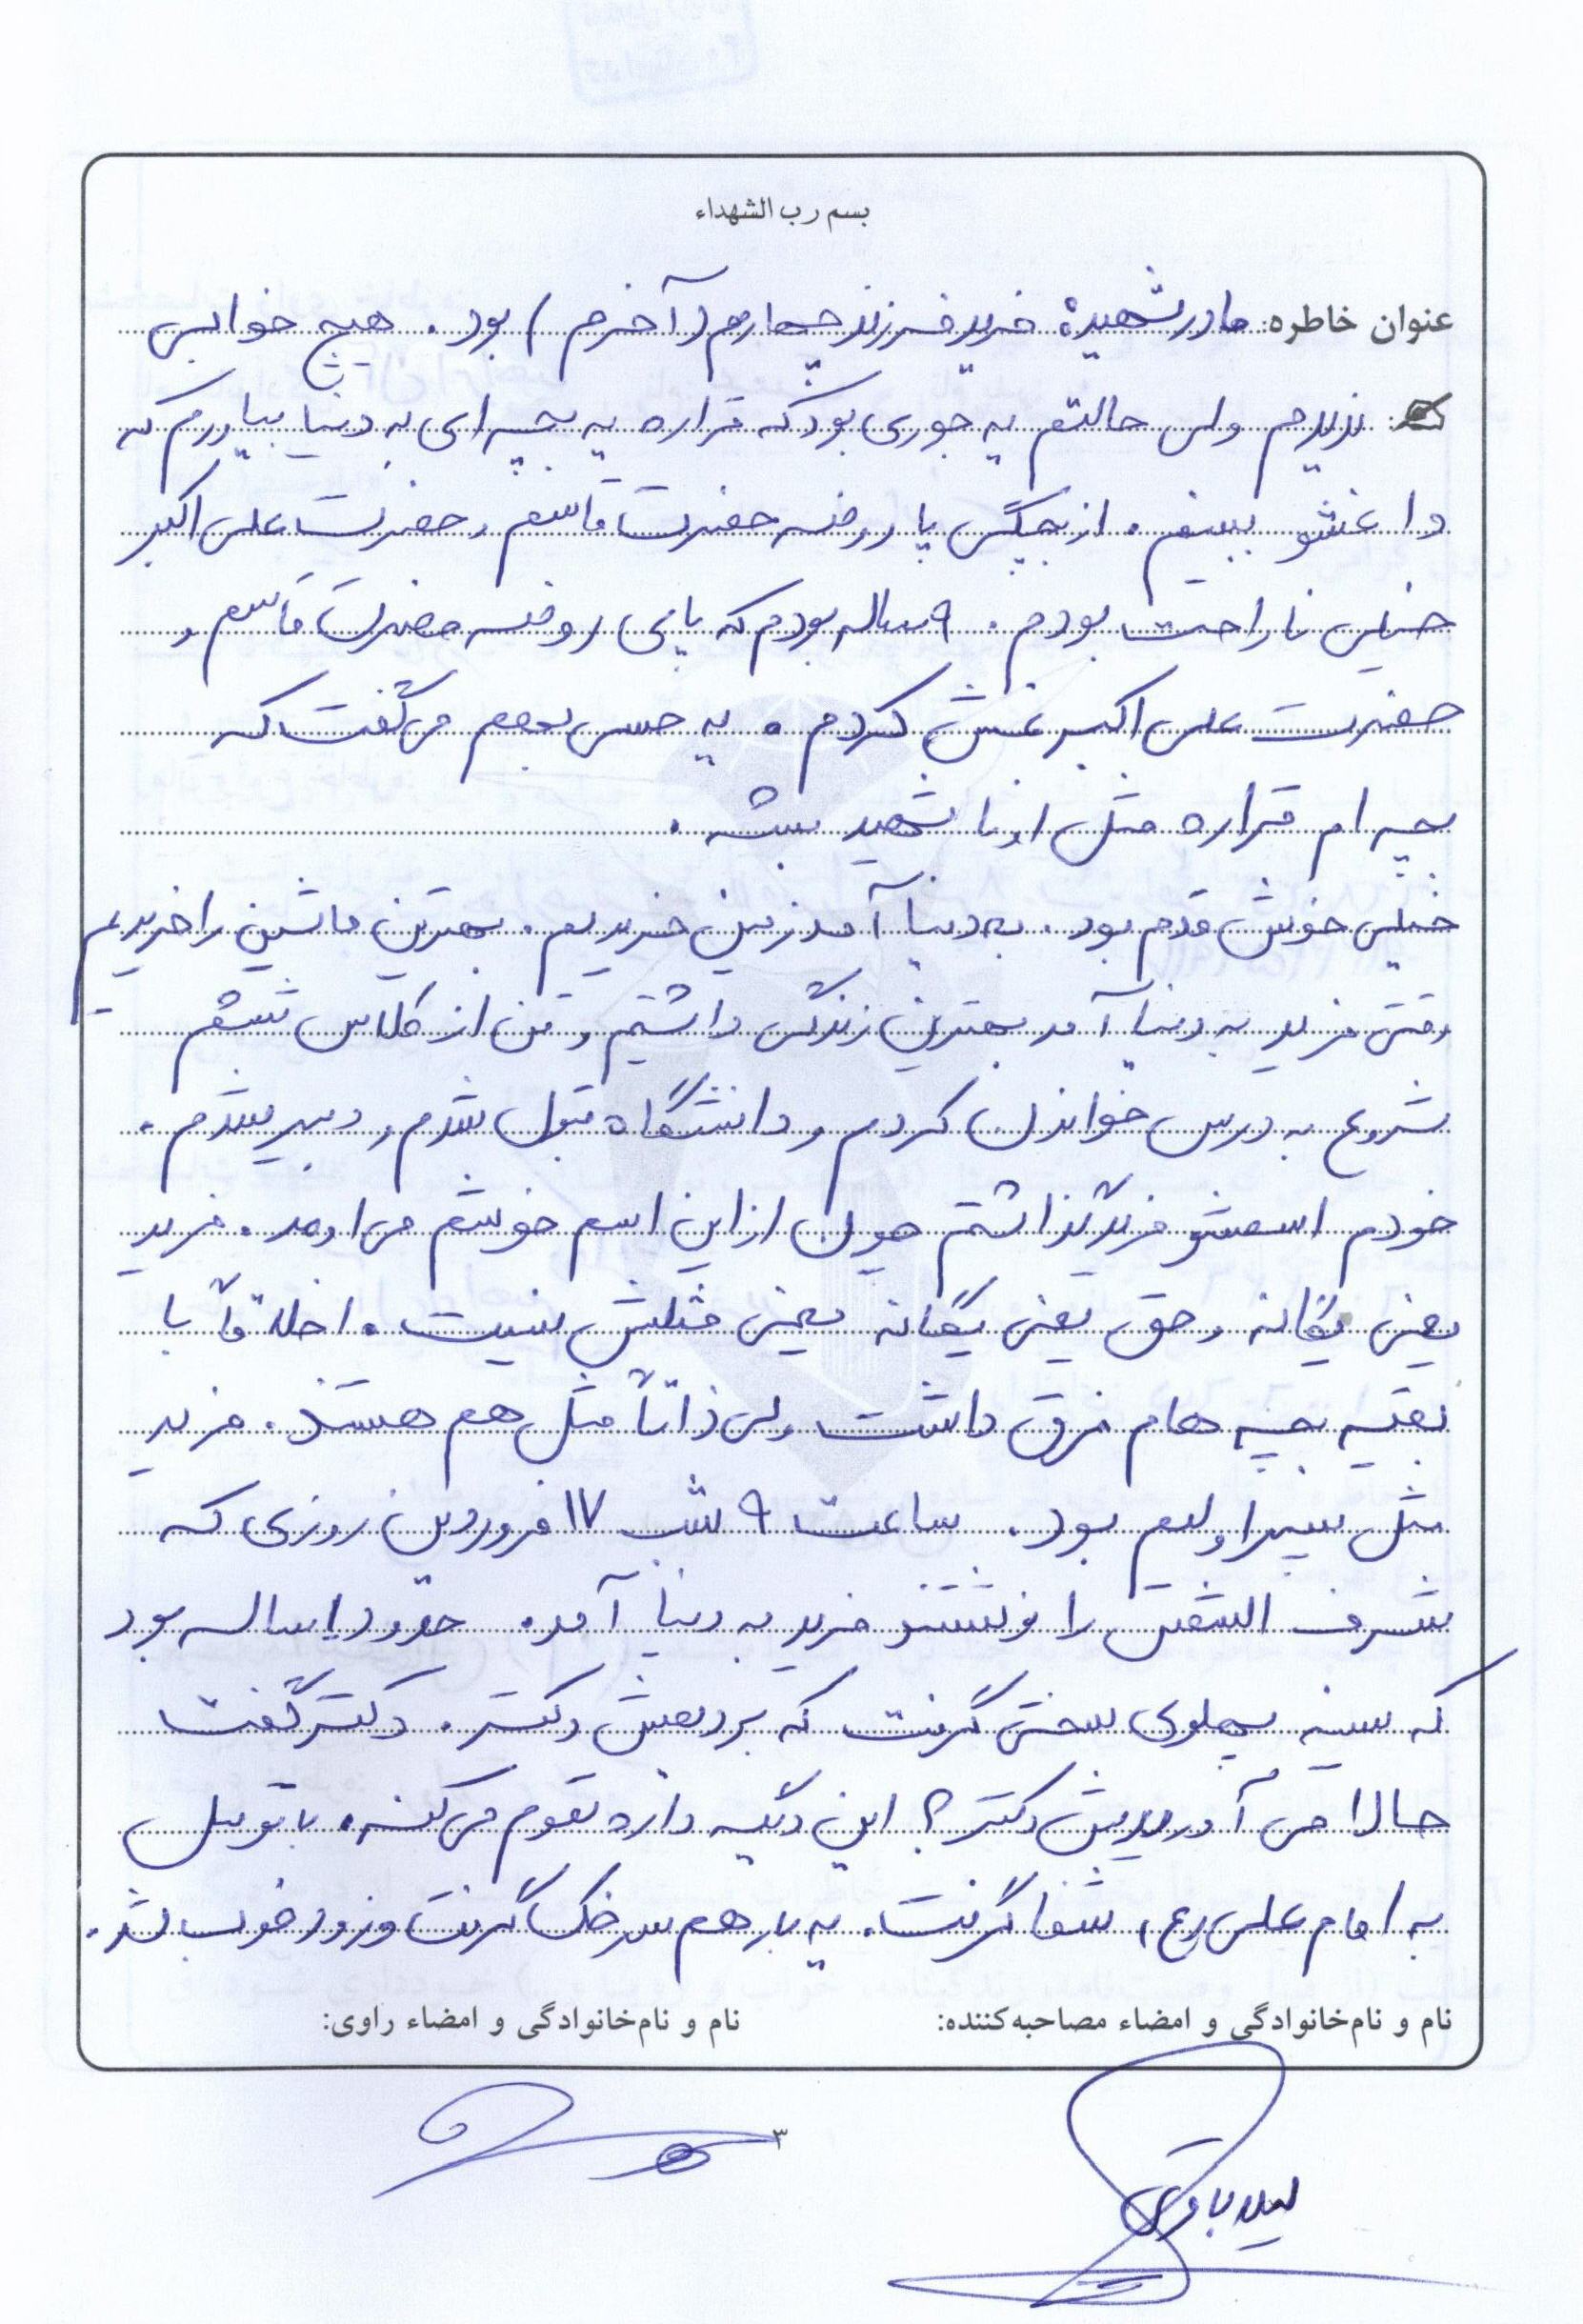 بسم رب الشهداء
عنوان خاطره: مادر شهید: فرید فرزند چهارم (آخرم) بود. هیچ خوابی
ندیدم ولی حالتم یه جوری بود که قراره یه بچه ای به دنیا بیاورم که
داغشو ببینم. از بچگی پا روضه حضرت قاسم و حضرت علی اکبر
خیلی ناراحت بودم. ۹ ساله بودم که پای روضه حضرت قاسم و
حضرت علی اکبر غش کردم. یه حسی بهم می گفت که
بچه ام قراره مثل اونا شهید بشه.
خیلی خوش قدم بود. به دنیا آمد زمین خریدیم. بهترین ماشین را خریدیم
وقتی فرید به دنیا آمد بهترین زندگی داشتیم و من از کلاس ششم
شروع به درس خواندن کردم و دانشگاه قبول شدم و دبیر شدم.
خودم اسمشو فرید گذاشتم چون از این اسم خوشم می اومد. فرید
یعنی یگانه و حق یعنی یگانه یعنی مثلش نیست. اخلاقاً با
بقیه بچه هام فرق داشت ولی ذاتاً مثل هم هستند. فرید
مثل پسر اولم بود. ساعت ۹ شب ۱۷ فروردین روزی که
شرف الشمس را نوشتند فرید به دنیا آمد. حدود ۱ ساله بود
که سینه پهلوی سختی گرفت که بردیمش دکتر. دکتر گفت
حالا می آوردیدش دکتر؟ این دیگه داره تموم می کنه. با توسل
به امام علی (ع) شفا گرفت. یه بار هم سرخک گرفت و زود خوب شد.
نام و نام‌خانوادگی و امضاء مصاحبه‌کننده:
نام و نام‌خانوادگی و امضاء راوی:
۳